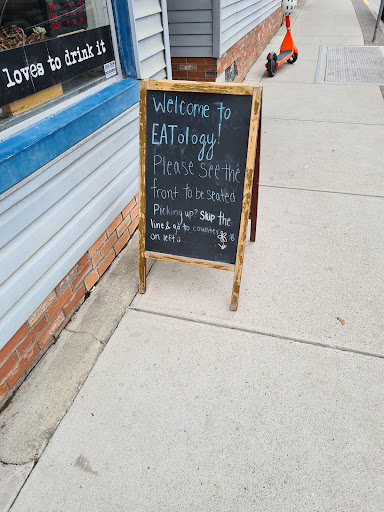 loves to drink it
Welcome to
EATology!
Please see the
front to be seated
Picking up? Skip the
line & go to counter
on left